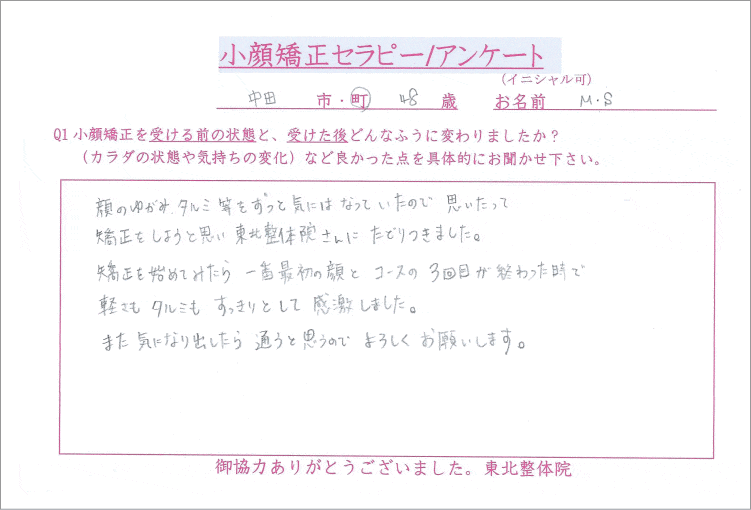 小顔矯正セラピー/アンケート
(イニシャル可)
中田 市・町 48 歳 お名前 M・S
Q1 小顔矯正を受ける前の状態と、受けた後どんなふうに変わりましたか?
(カラダの状態や気持ちの変化)など良かった点を具体的にお聞かせ下さい。
顔のゆがみ、タルミ等をずっと気にはなっていたので思いたって
矯正をしようと思い東北整体院さんにたどりつきました。
矯正を始めてみたら一番最初の顔とコースの3回目が終わった時で
軽さもタルミもすっきりとして感激しました。
また気になり出したら通うと思うのでよろしくお願いします。
御協力ありがとうございました。東北整体院